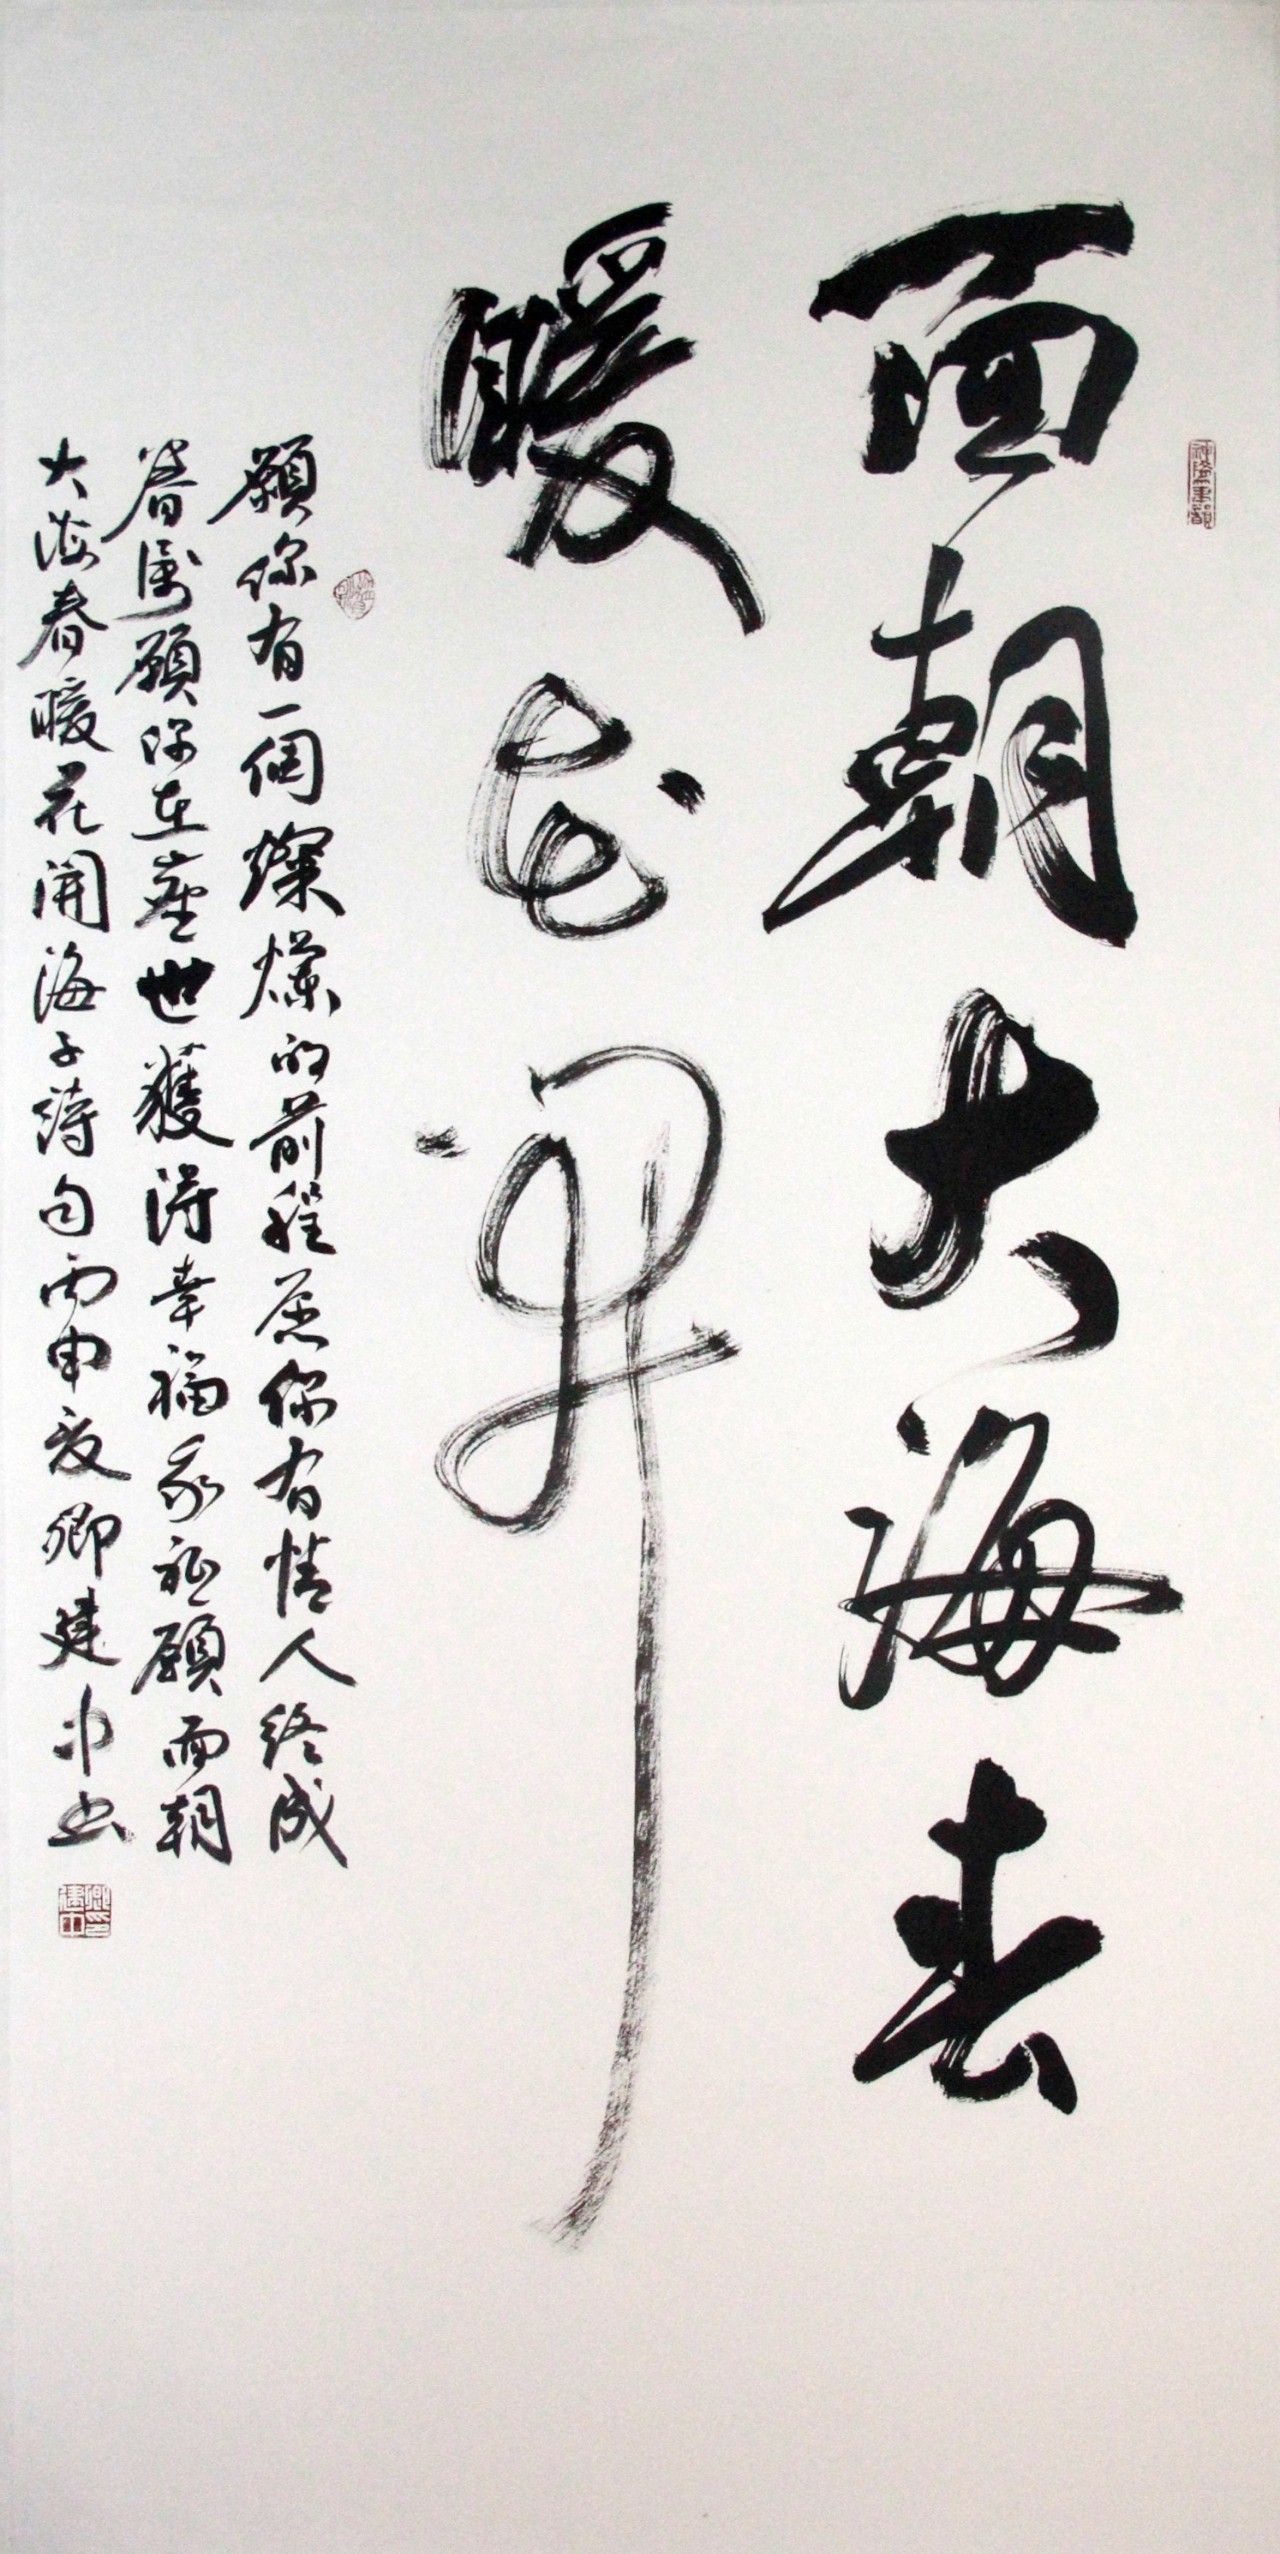 面朝大海春
暖花開
願你有一個燦爛的前程願你有情人終成
眷属願你在塵世獲得幸福我祗願面朝
大海春暖花開海子詩句丙申夏卿建中书